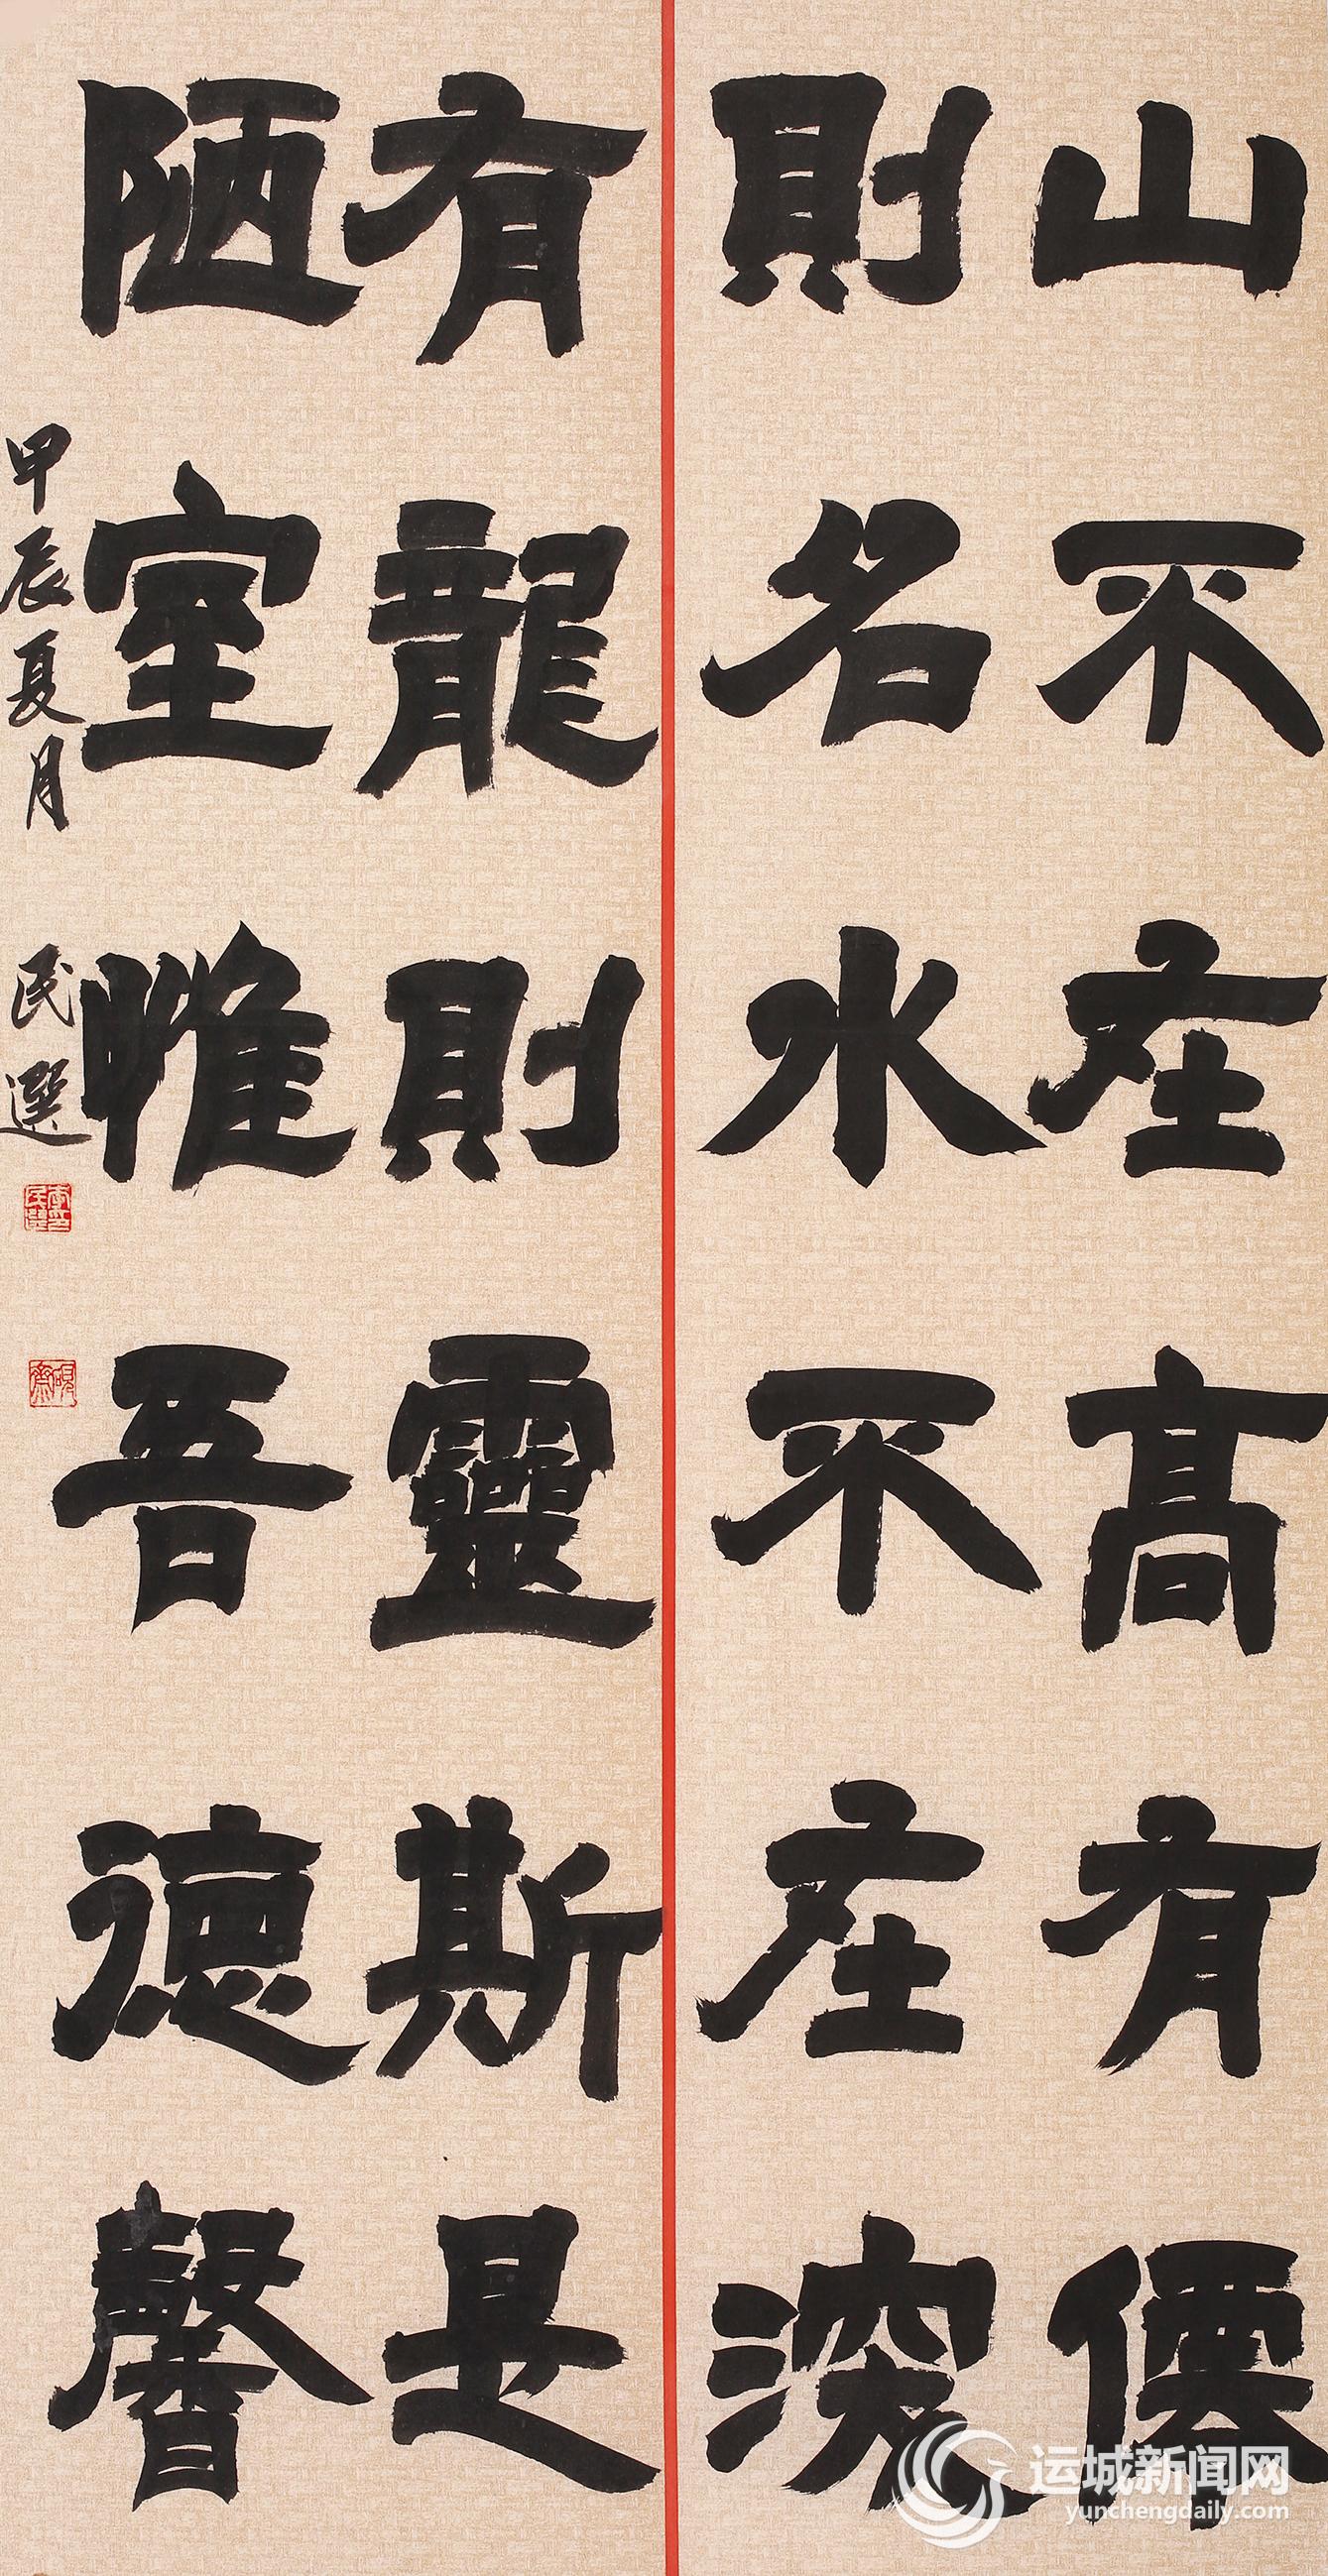 山不在高有僊
則名水不在深
有龍則靈斯是
陋室惟吾德馨
甲辰夏月 民選
硯齋
运城新闻网
yunchengdaily.com